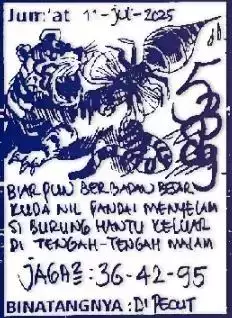 Jum'at 11-Jul-2025
BIAR PUN BERBADAN BESAR
KUDA NIL PANDAI MENYELAM
SI BURUNG HANTU KELUAR
DI TENGAH-TENGAH MALAM
JAGA2 : 36-42-95
BINATANGNYA : DI PECUT